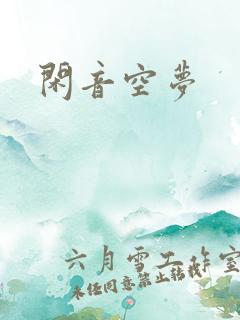 閑音空夢
六月雪工作室
未经同意禁止转载